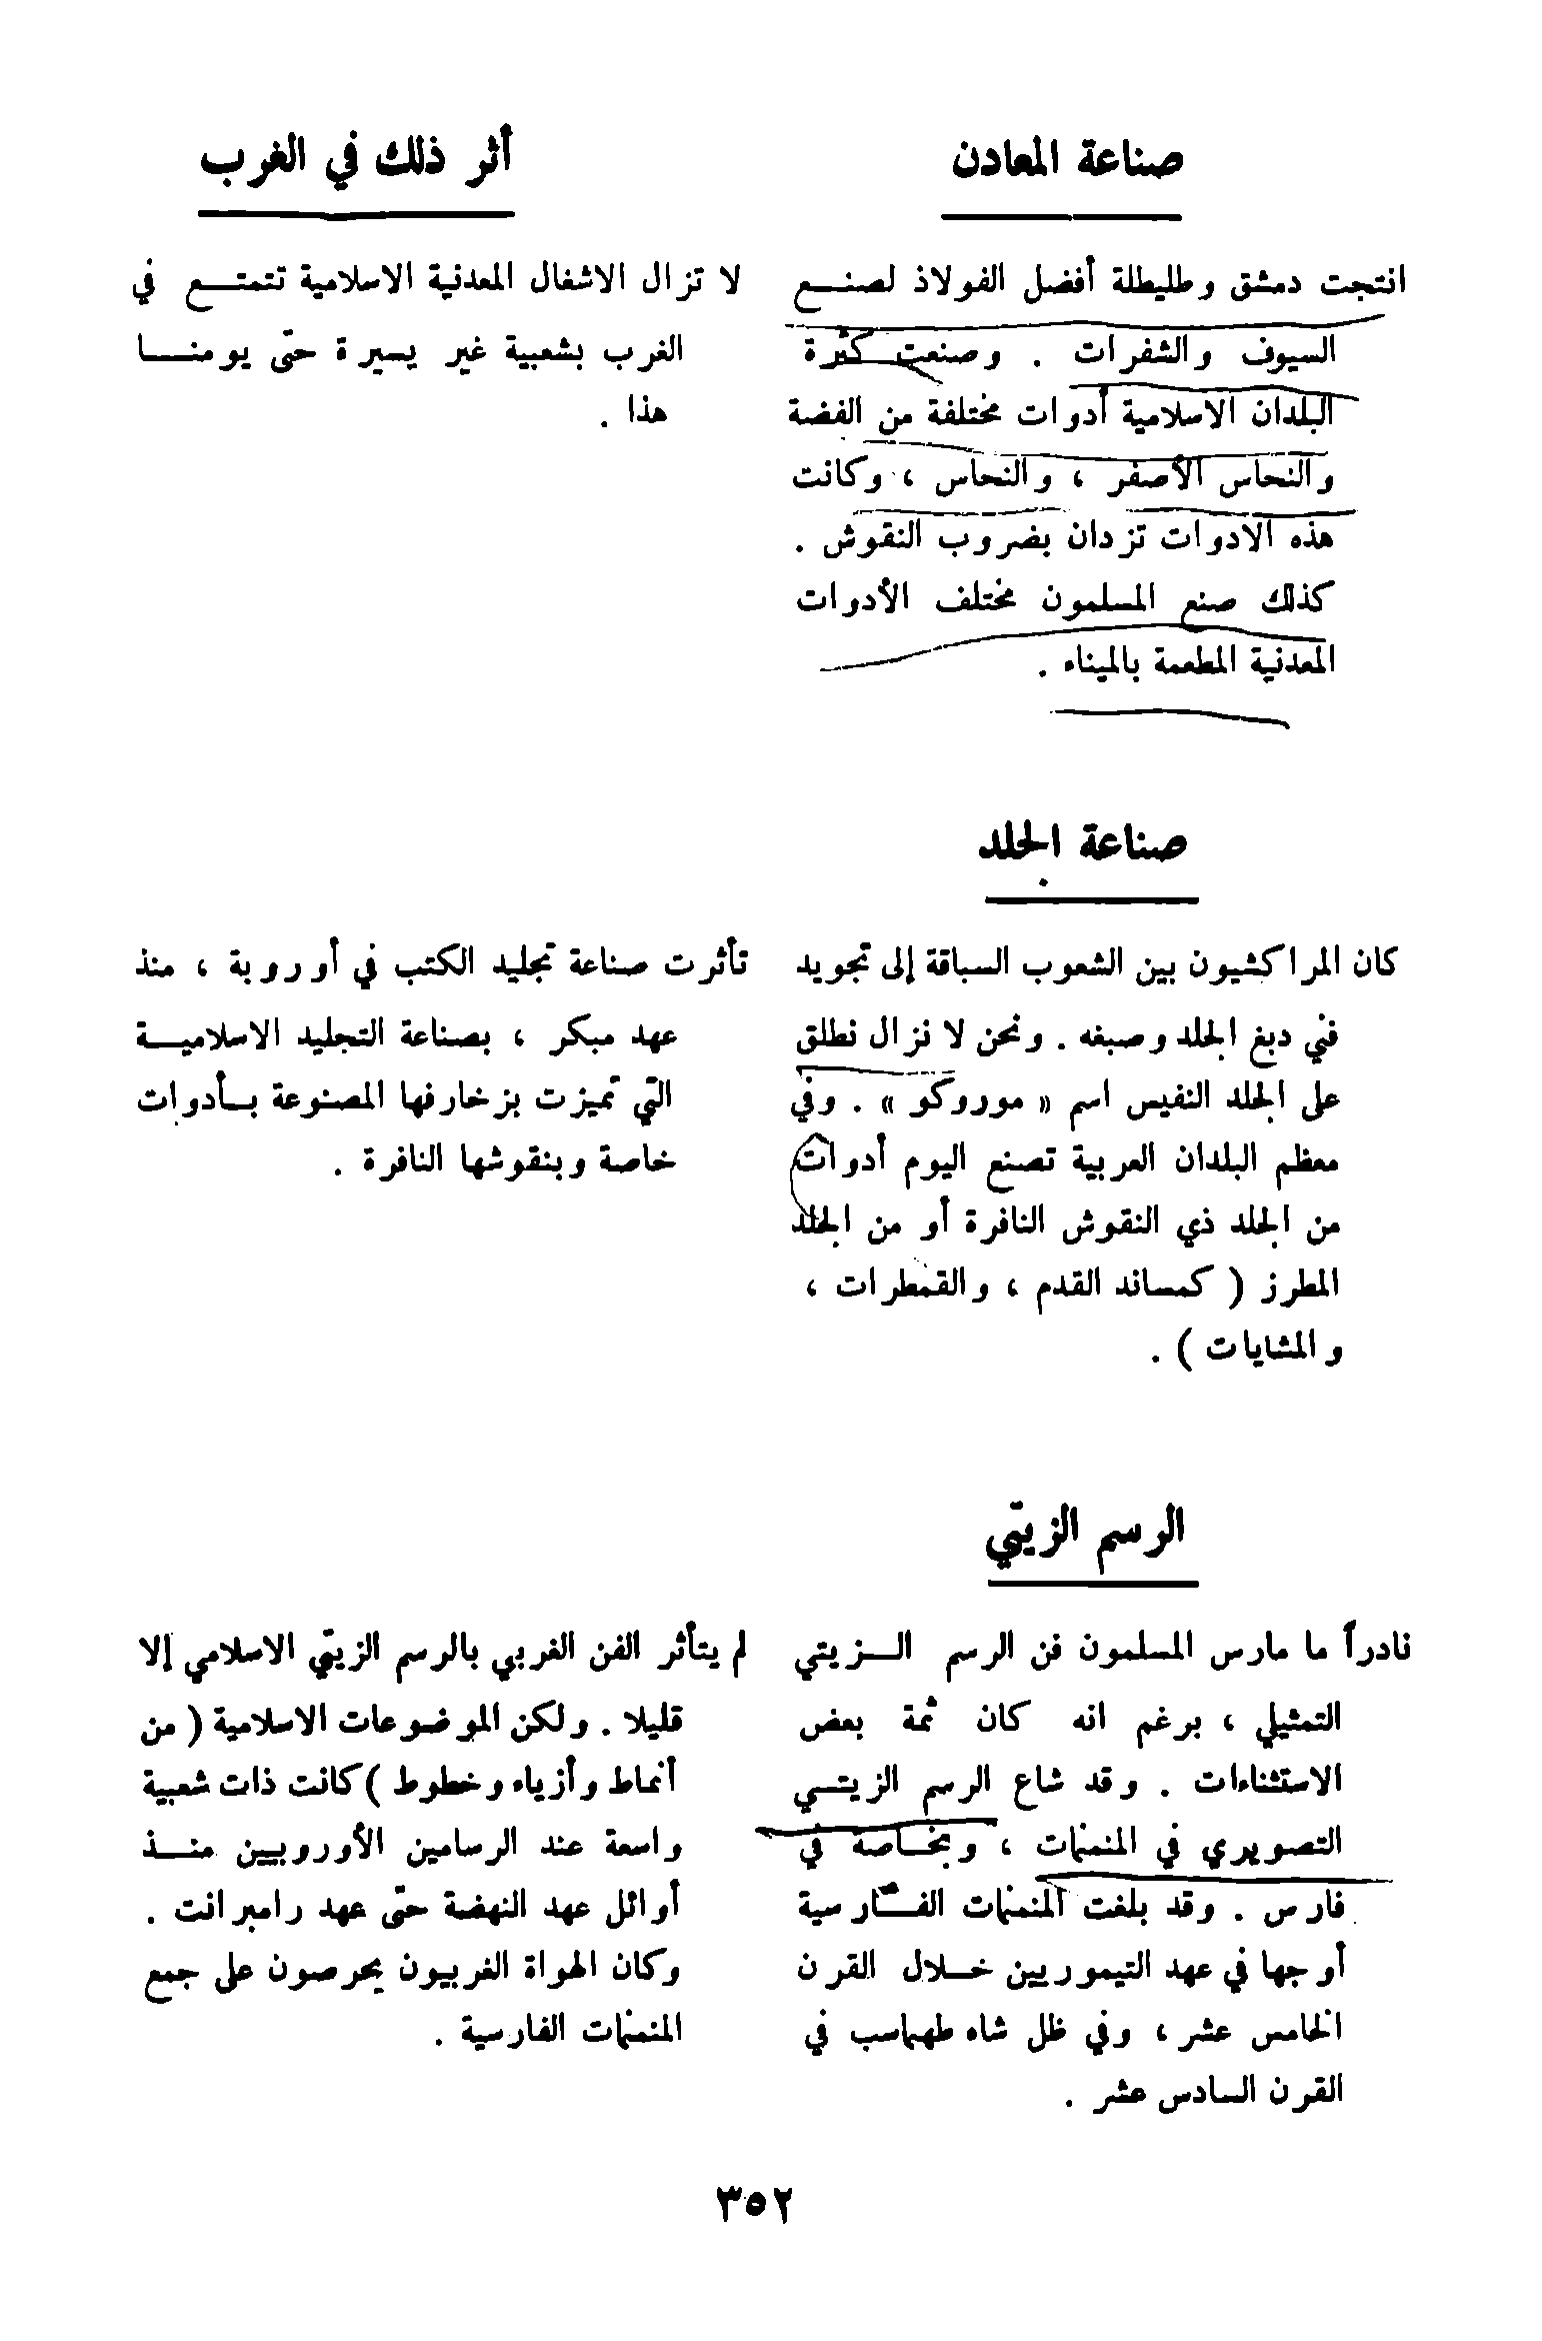 صناعة المعادن
انتجت دمشق وطليطلة أفضل الفولاذ لصنع
السيوف والشفرات . وصنعت كثرة
البلدان الاسلامية أدوات مختلفة من الفضة
والنحاس الأصفر ، والنحاس ، وكانت
هذه الادوات تزدان بضروب النقوش .
كذلك صنع المسلمون مختلف الأدوات
المعدنية المطعمة بالميناء .
أثر ذلك في الغرب
لا تزال الاشغال المعدنية الاسلامية تتمتع في
الغرب بشعبية غير يسيرة حتى يومنا
هذا .
صناعة الجلد
كان المراكشيون بين الشعوب السباقة إلى تجويد
فني دبغ الجلد وصبغه . ونحن لا نزال نطلق
على الجلد النفيس اسم « موروكو » . وفي
معظم البلدان العربية تصنع اليوم أدوات
من الجلد ذي النقوش النافرة أو من الجلد
المطرز ( كمساند القدم ، والقمطرات ،
والمشايات ) .
تأثرت صناعة تجليد الكتب في أوروبة ، منذ
عهد مبكر ، بصناعة التجليد الاسلامية
التي تميزت بزخارفها المصنوعة بأدوات
خاصة وبنقوشها النافرة .
الرسم الزيتي
نادراً ما مارس المسلمون فن الرسم الزيتي
التمثيلي ، برغم انه كان ثمة بعض
الاستثناءات . وقد شاع الرسم الزيتي
التصويري في المنمنمات ، وبخاصة في
فارس . وقد بلغت المنمنمات الفارسية
أوجها في عهد التيموريين خلال القرن
الخامس عشر ، وفي ظل شاه طهماسب في
القرن السادس عشر .
لم يتأثر الفن الغربي بالرسم الزيتي الاسلامي إلا
قليلا . ولكن الموضوعات الاسلامية ( من
أنماط وأزياء وخطوط ) كانت ذات شعبية
واسعة عند الرسامين الأوروبيين منذ
أوائل عهد النهضة حتى عهد رامبرانت .
وكان الهواة الغربيون يحرصون على جمع
المنمنمات الفارسية .
٣٥٢